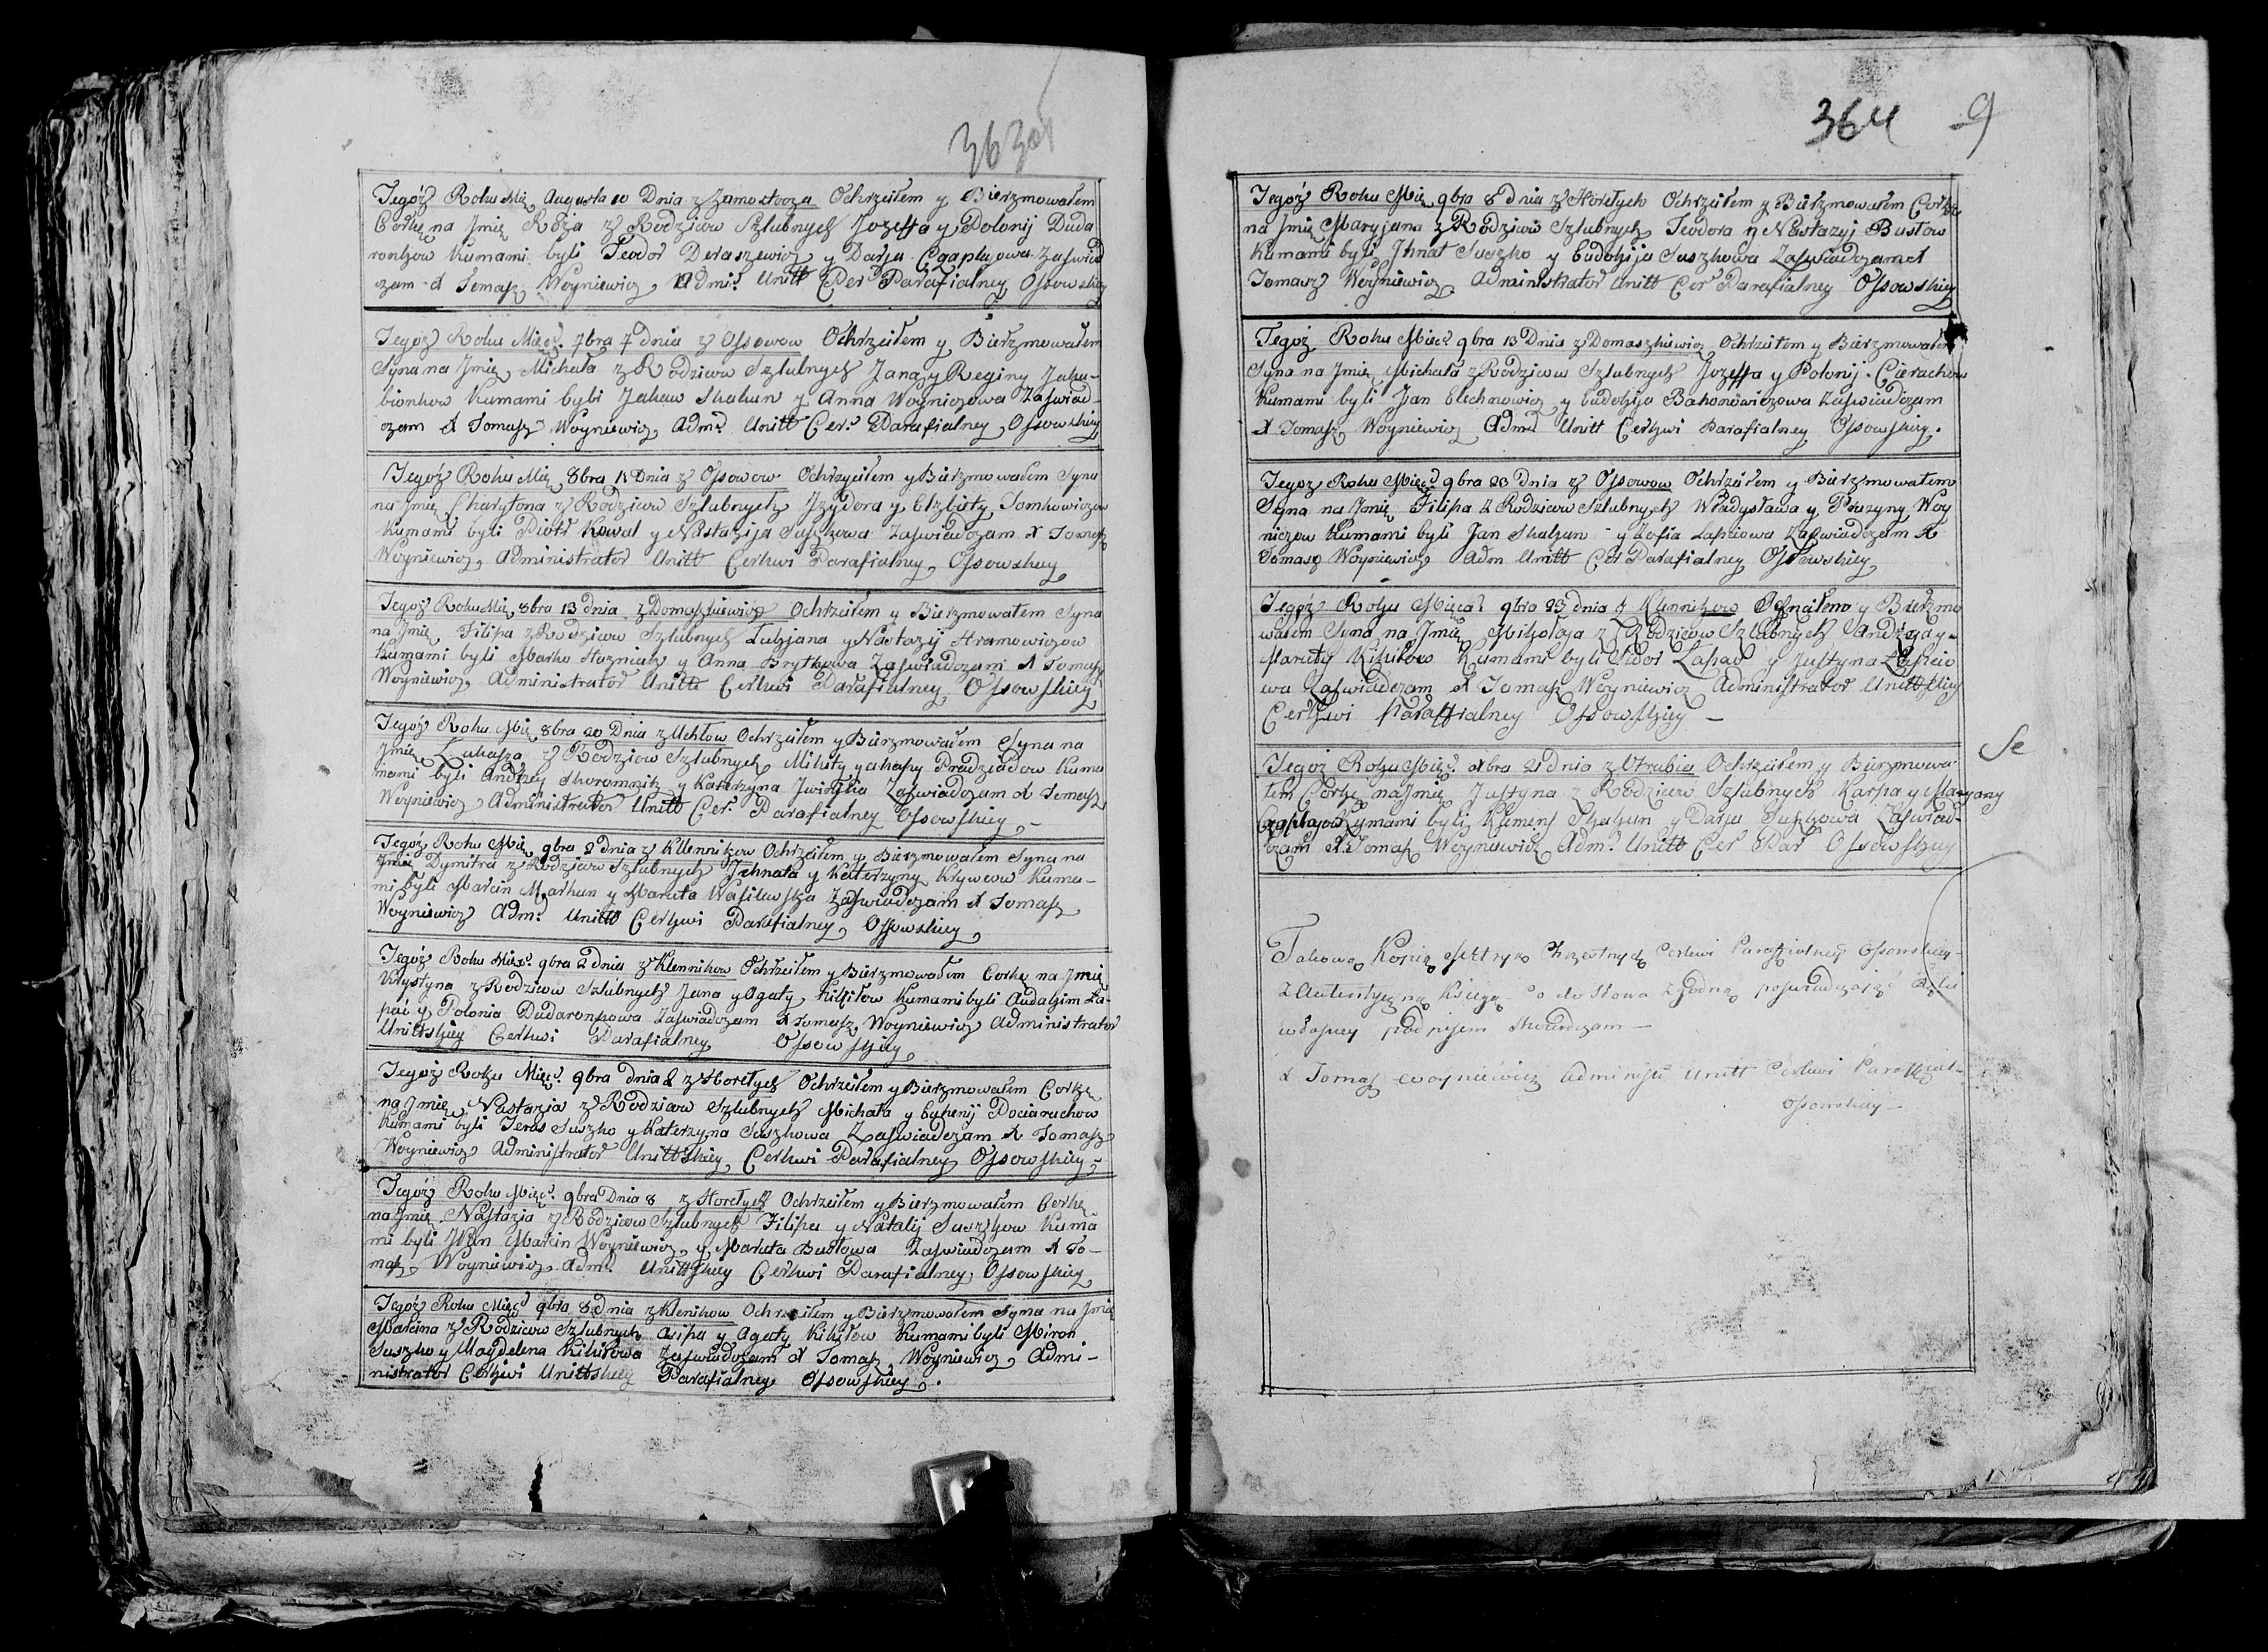 363
Tegóż Roku Mię Augusta 10 Dnia z Zamostocza Ochrzciłem y Bierzmowałem
Corkę na Jmię Róża z Rodzicow Szlubnych Jozeffa y Polonij Duda
ronkow Kumami byli Teodor Deraszewicz y Darja Cgaplajowa Zaswiad
czam X Tomasz Woyniewicz Admi: Unitt Cer Parafialney Ossowskiey
Tegoż Roku Mięc: 7bra 7 dnia z Ossowow Ochrzciłem y Bierzmowałem
Syna na Jmię Michała z Rodzicow Szlubnych Jana y Reginy Jaku-
bionkow Kumami byli Jakow Skakun y Anna Woyniczowa Zaswiad-
czam X Tomasz Woyniewicz Adm: Unitt Cer: Parafialney Ossowskiey
Tegoż Roku Mię 8bra 11 Dnia z Ossowow Ochrzyciłem y Bierzmowałem Syna
na Jmię Charytona z Rodzicow Szlubnych Jzydora y Elzbiety Tomkowiczow
Kumami byli Piotr Kowal y Nastazija Suszkowa Zaswiadczam X Tomasz
Woyniewicz Administrator Unitt Cerkwi Parafialney Ossowskiey
Tegoż Roku Mię 8bra 13 dnia z Domaszkiewicz Ochrzciłem y Bierzmowałem Syna
na Jmię Filipa z Rodzicow Szlubnych Łukjana y Nastazij Hramowiczow
Kumami byli Marko Huzniak y Anna Brytkowa Zaswiadczam X Tomasz
Woyniewicz Administrator Unitt Cerkwi Parafialney Ossowskiey
Tegoż Roku Mię 8bra 20 Dnia z Uchłow Ochrzciłem y Bierzmowałem Syna na
Jmię Łukasza z Rodzicow Szlubnych Mikity y Ahapy Pradziadow Kuma
mami byli Andrzey Skoromnik y Katerzyna Jwinska Zaswiadczam X Tomasz
Woyniewicz Administrator Unitt Cer: Parafialney Ossowskiey –
Tegoż Roku Mię 9bra 2 Dnia z Klennikow Ochrzciłem y Bierzmowałem Syna na
Jmię Dymitra z Rodzicow Szlubnych Jhnata y Katerzyny Krywcow Kuma-
mi byli Marcin Markun y Maruta Wasilewska Zaswiadczam X Tomasz
Woyniewicz Adm: Unitt Cerkwi Parafialney Ossowskiey
Tegoż Roku Mięc: 9bra 2 dnia z Klennikow Ochrzciłem y Bierzmowałem Corkę na Jmię
Krystyna z Rodzicow Szlubnych Jana y Agaty Kikiłow Kumami byli Audakim Ła-
pać y Polonia Dudaronkowa Zaswiadczam X Tomasz Woyniewicz Administrator
Unittskiey Cerkwi Parafialney Ossowskiey
Tegoż Roku Mięc: 9bra dnia 2 z Horełych Ochrzciłem y Bierzmowałem Corkę
na Jmię Nastazia z Rodzicow Szlubnych Michała y Euhenij Pociaruchow
Kumami byli Teres Suszko y Katerzyna Suszkowa Zaswiadczam X Tomasz
Woyniewicz Administrator Unittskiey Cerkwi Parafialney Ossowskiey –
Tegoż Roku Mięc: 9bra Dnia 8 z Horełych Ochrzciłem y Bierzmowałem Corkę
na Jmię Nastazja z Rodzicow Szlubnych Filipa y Natalij Suszkow Kuma
mi byli JWon Marcin Woyniewicz y Maruta Busłowa Zaswiadczam X To-
masz Woyniewicz Adm: Unittskiey Cerkwi Parafialney Ossowskiey
Tegoż Roku Mięc 9bra 8 dnia z Klenikow Ochrzciłem y Bierzmowałem Syna na Jmię
Marcina z Rodzicow Szlubnych Asipa y Agaty Kikiłow Kumami byli Miron
Suszko y Magdelena Kikiłowa Zaswiadczam X Tomasz Woyniewicz Admi-
nistrator Cerkwi Unittskiey Parafialney Ossowskiey.
364 9
Tegoż Roku Mię 9bra 8 dnia z Horełych Ochrzciłem y Bierzmowałem Corkę
na Jmię Maryjana z Rodzicow Szlubnych Teodora y Nastazyj Busłow
Kumami byli Jhnat Suszko y Eudokija Suszkowa Zaswiadczam X
Tomasz Woyniewicz Administrator Unitt Cer Parafialney Ossowskiey
Tegoż Roku Mięc 9bra 13 Dnia z Domaszkiewicz Ochrzciłem y Bierzmowałem
Syna na Jmię Michała z Rodzicow Szlubnych Jozeffa y Polonij Cierachow
Kumami byli Jan Elechnowicz y Eudokija Bahonowiczowa Zaswiadczam
X Tomasz Woyniewicz Adm: Unitt Cerkwi Parafialney Ossowskiey.
Tegoż Roku Mięc 9bra 23 dnia z Ossowow Ochrzciłem y Bierzmowałem
Syna na Jmię Filipa z Rodzicow Szlubnych Władysława y Pruzyny Woy
niczow Kumami byli Jan Skakun y Zofia Łapciowa Zaswiadczam X
Tomasz Woyniewicz Adm Unitt Cer Parafialney Ossowskiey
Tegoż Roku Mięca: 9bra 23 dnia z Klennikow y Bierzmo
wałem Syna na Jmię Mikołaja z Rodzicow Szlubnych Andrzeja y
Maruty Kikiłow Kumami byli Sidor Łapać y Justyna Łapcio
wa Zaswiadczam X Tomasz Woyniewicz Administrator Unittskiey
Cerkwi Paraffialney Ossowskiey –
Tegoż Roku Mięc: Xbra 21 dnia z Utrubia Ochrzciłem y Bierzmowa-
łem Corkę na Jmię Justyna z Rodzicow Szlubnych Karpa y Maryany
Cgaplajow Kumami byli Klimens Skakun y Darja Suszkowa Zaswiad-
czam X Tomasz Woyniewicz Adm: Unitt Cer Par Ossowskiey
Se
Takową Kopię Mettryk Chrzestnych Cerkwi Paraffialney Ossowskiey
z Autentyczną Księgą co do słowa zgodną poswiadczając
własnym podpisem stwierdzam –
X Tomasz Woyniewicz Administr Unitt Cerkwi Paraffial-
Ossowskiey –